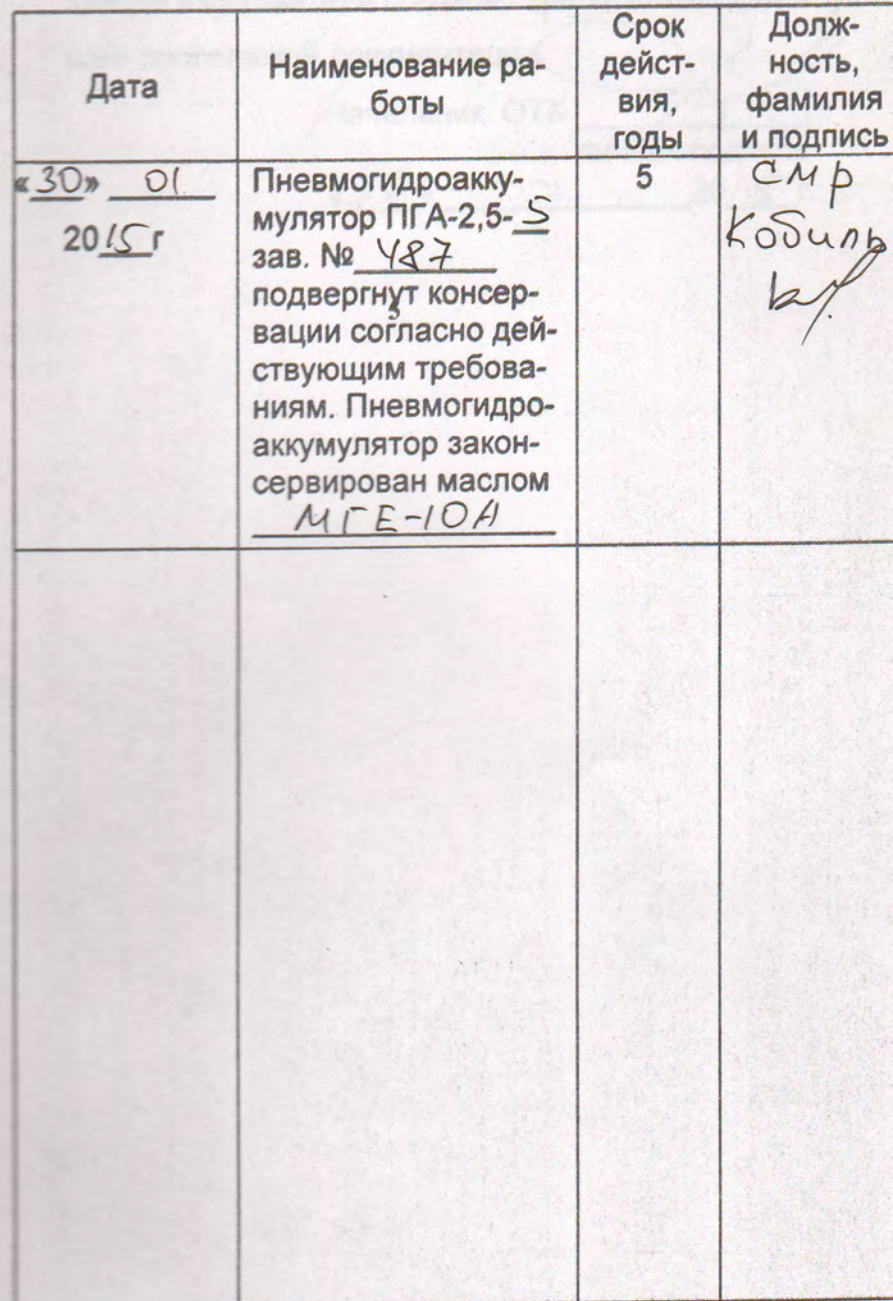 Дата
Наименование ра-
боты
Срок
дейст-
вия,
годы
Долж-
ность,
фамилия
и подпись
«30» 01
2015 г
Пневмогидроакку-
мулятор ПГА-2,5-5
зав. № 487
подвергнут консер-
вации согласно дей-
ствующим требова-
ниям. Пневмогидро-
аккумулятор закон-
сервирован маслом
МГЕ-10А
5
смр
Кобиль